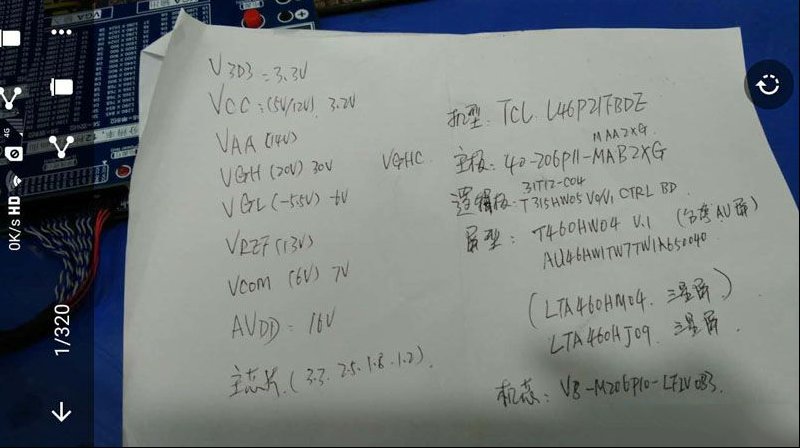 V3D3 = 3.3V
VCC: (5V/12V). 3.2V
VAA (14V)
VGH (20V) 30V
VGHC
VGL (-5.5V) -6V
VREF (1.3V)
VCOM (6V) 7V
AVDD: 16V
主芯片. (3.3. 2.5. 1.8. 1.2).
机型: TCL L46P21FBDE
MAA2XG
主板: 40-206P11-MAB2XG
31T12-C04
逻辑板: T315HW05 V0/V1 CTRL BD
屏型: T460HW04 V.1 (台湾AU屏)
AU46HW1TW7TW1A650040
(LTA460HM04. 三星屏)
LTA460HJ09. 三星屏.
机芯: V8-M206P10-LF1V083.
1/320
0K/s HD 4G